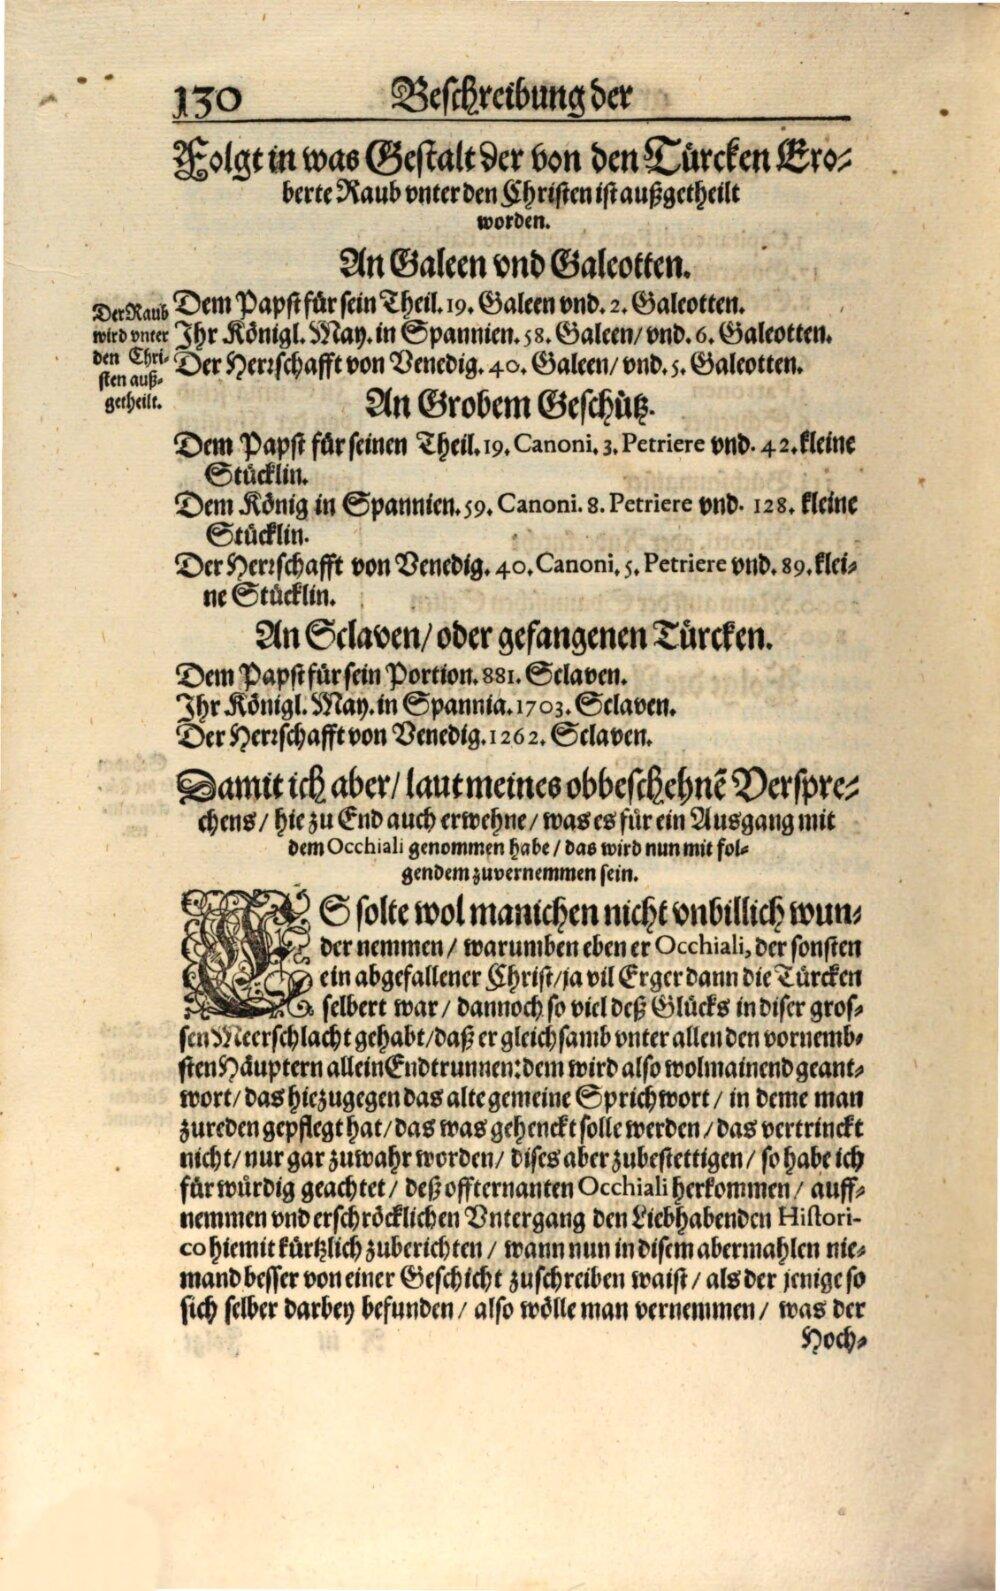 130 Beschreibung der
Folgt in was Gestalt der von den Türcken Ero-
berte Raub vnter den Christen ist außgetheilt
worden.
An Galeen vnd Galeotten.
Der Raub
wird vnter
den Chri-
sten auß-
getheilt.
Dem Papst für sein Theil. 19. Galeen vnd. 2. Galeotten.
Ihr Königl. May. in Spannien. 58. Galeen/ vnd. 6. Galeotten.
Der Herrschafft von Venedig. 40. Galeen/ vnd. 5. Galeotten.
An Grobem Geschütz.
Dem Papst für seinen Theil. 19. Canoni. 3. Petriere vnd. 42. kleine
Stücklin.
Dem König in Spannien. 59. Canoni. 8. Petriere vnd. 128. kleine
Stücklin.
Der Herrschafft von Venedig. 40. Canoni. 5. Petriere vnd. 89. klei-
ne Stücklin.
An Sclaven/ oder gefangenen Türcken.
Dem Papst für sein Portion. 881. Sclaven.
Ihr Königl. May. in Spannia. 1703. Sclaven.
Der Herrschafft von Venedig. 1262. Sclaven.
Damit ich aber/ laut meines obbeschehnē Verspre-
chens/ hie zu End auch erwehne/ was es für ein Ausgang mit
dem Occhiali genommen habe/ das wird nun mit fol-
gendem zuvernemmen sein.
ES solte wol manichen nicht vnbillich wun-
der nemmen/ warumben eben er Occhiali, der sonsten
ein abgefallener Christ/ ja vil Erger dann die Türcken
selbert war/ dannoch so viel deß Glücks in diser gros-
sen Meerschlacht gehabt/ daß er gleichsamb vnter allen den vornemb-
sten Häuptern allein Endtrunnen: dem wird also wolmainend geant-
wort/ das hiezugegen das alte gemeine Sprichwort/ in deme man
zureden gepflegt hat/ das was gehenckt solle werden/ das vertrinckt
nicht/ nur gar zuwahr worden/ dises aber zubestettigen/ so habe ich
für würdig geachtet/ deß offternanten Occhiali herkommen/ auff-
nemmen vnd erschröcklichen Vntergang den Liebhabenden Histori-
co hiemit kürtzlich zuberichten/ wann nun in disem abermahlen nie-
mand besser von einer Geschicht zuschreiben waist/ als der jenige so
sich selber darbey befunden/ also wölle man vernemmen/ was der
Hoch-